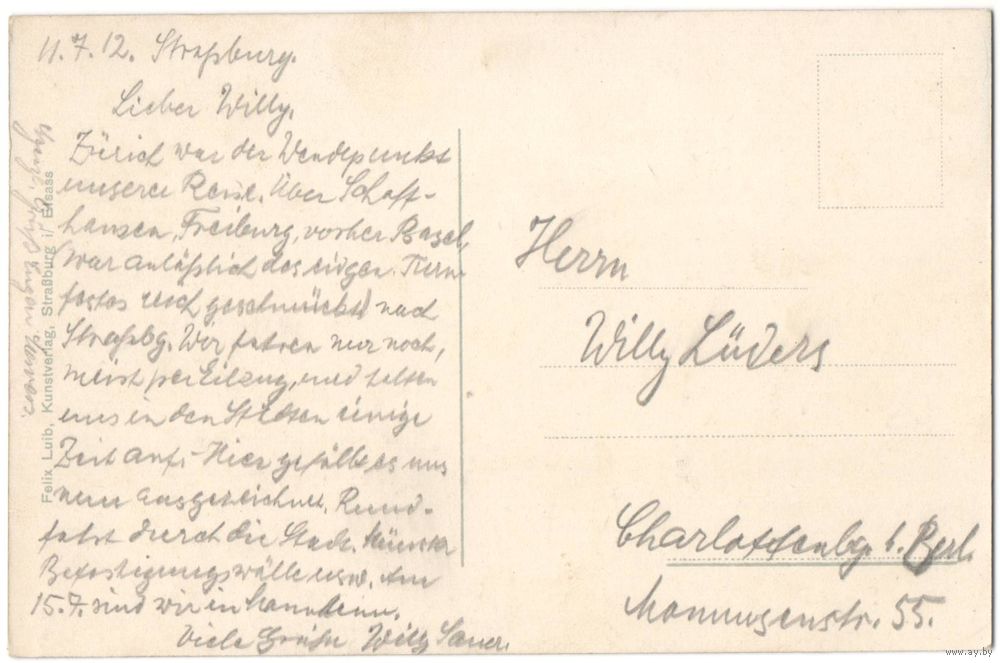 11.7.12. Straßburg.
Lieber Willy,
Zürich war der Wendepunkt
unserer Reise. Über Schaff-
hausen, Freiburg, vorher Basel,
war anläßlich des eidgen. Turn-
festes reich geschmückt, nach
Straßbg. Wir fahren nur noch,
meist per Eilzug, und halten
uns in den Städten einige
Zeit auf. Hier gefällt es uns
nun ausgezeichnet. Rund-
fahrt durch die Stadt. Münster
Befestigungswälle usw. Am
15.7. sind wir in
Viele Grüße Willy
Felix Luib, Kunstverlag, Straßburg i/ Elsass
Herrn
Willy Lüders
Charlottenbg. b. Berl.
Mommsenstr. 55.
www.ay.by